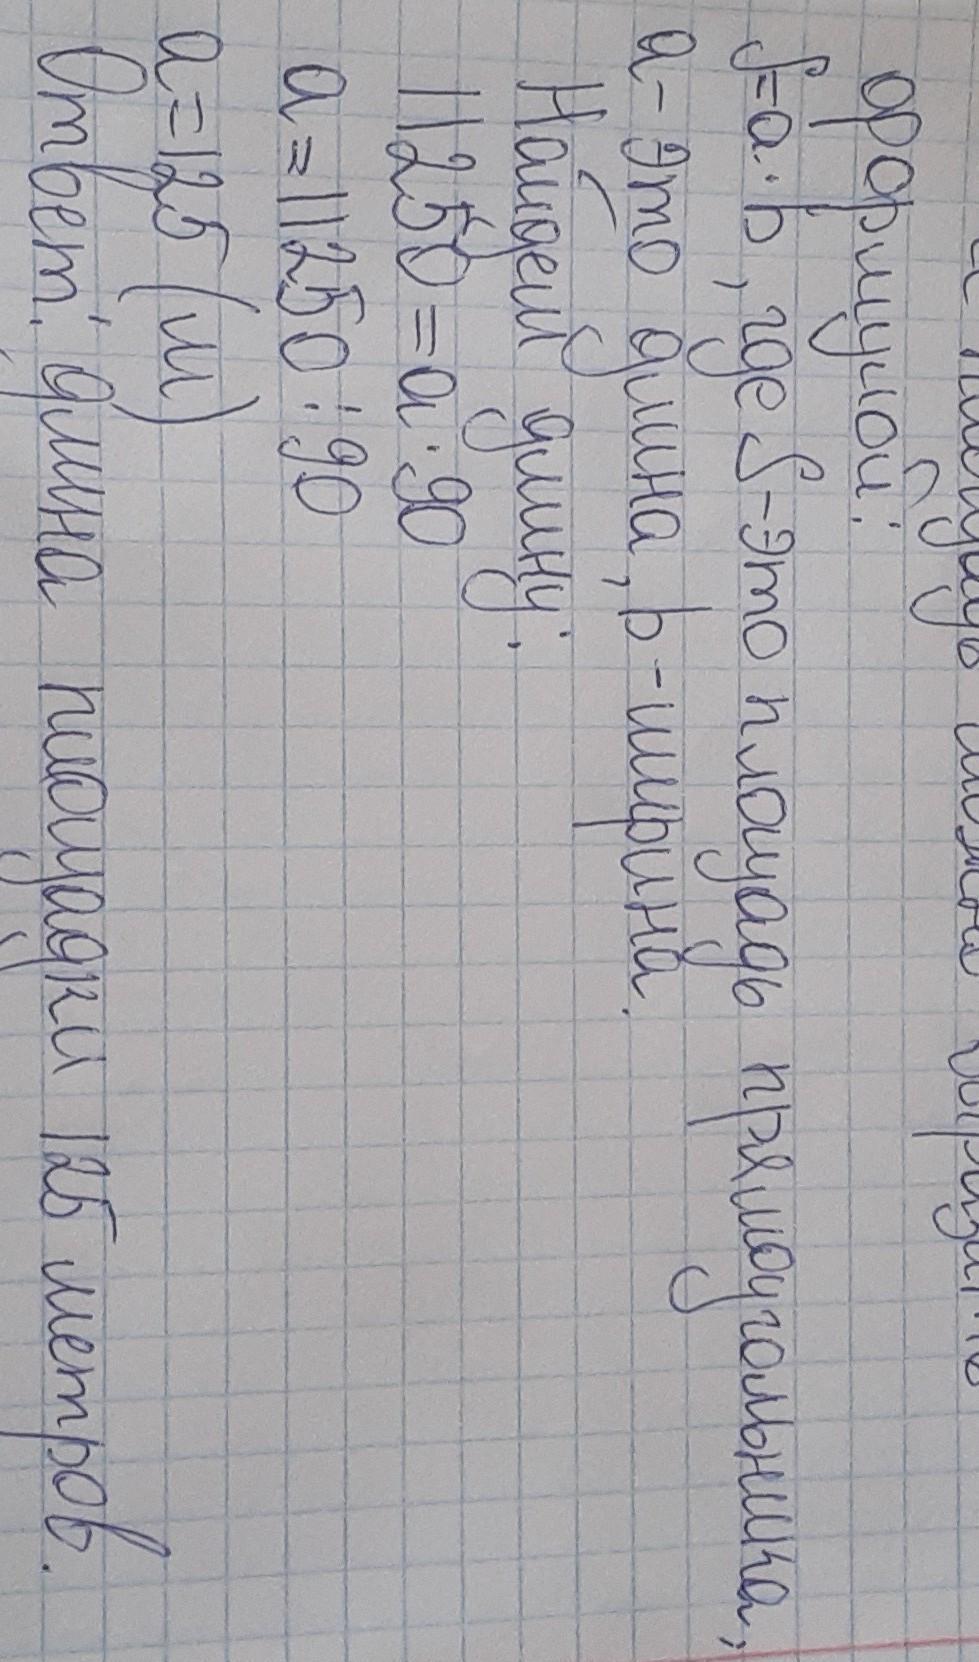 площадь можно выразить
формулой:
S=a·b, где S-это площадь прямоугольника,
a-это длина, b-ширина.
Найдем длину:
11250=a·90
a=11250:90
a=125 (м)
Ответ: длина площадки 125 метров.